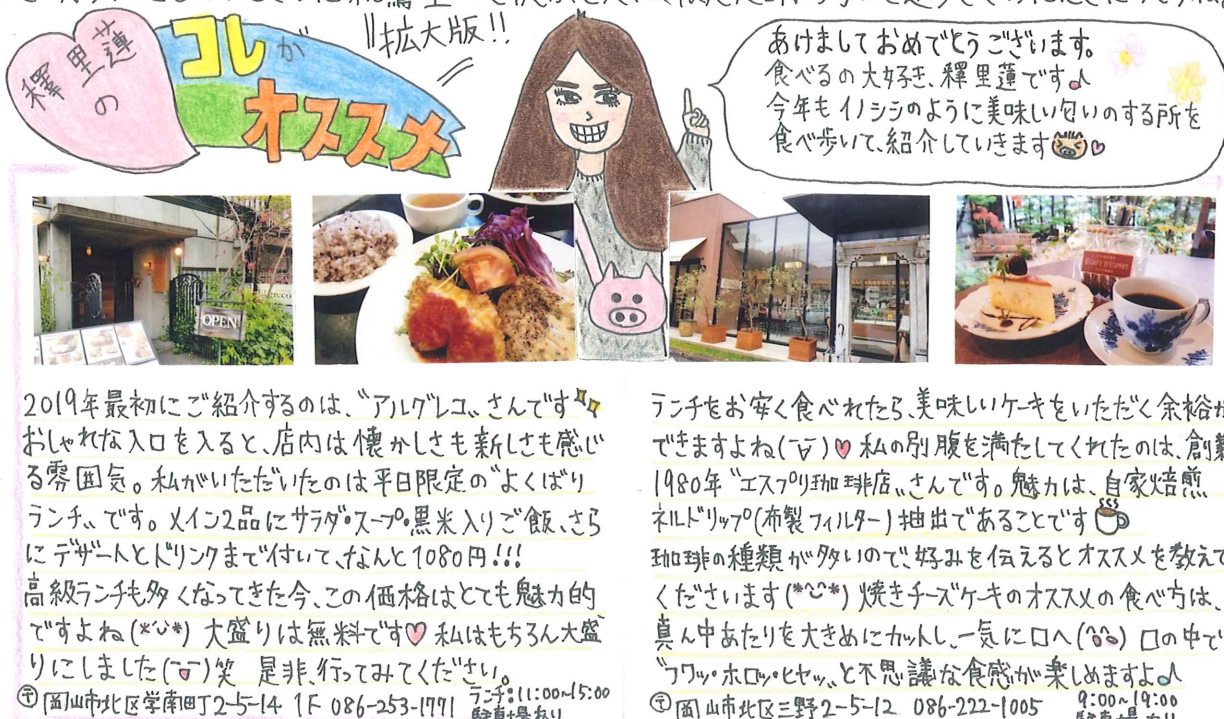 釋里蓮の
コレが
オススメ
拡大版!!
あけましておめでとうございます。
食べるの大好き、釋里蓮です♪
今年もイノシシのように美味しい匂いのする所を
食べ歩いて、紹介していきます♡
OPEN
CAFE D'ESPRIT
2019年最初にご紹介するのは、〝アルグレコ〟さんです
おしゃれな入口を入ると、店内は懐かしさも新しさも感じ
る雰囲気。私がいただいたのは平日限定の〝よくばり
ランチ〟です。メイン2品にサラダ・スープ・黒米入りご飯、さら
にデザートとドリンクまで付いて、なんと1080円!!!
高級ランチも多くなってきた今、この価格はとても魅力的
ですよね(*ˇᵕˇ*) 大盛りは無料です♡ 私はもちろん大盛
りにしました(¯▽¯)笑 是非、行ってみてください。
〒岡山市北区学南町2-5-14 1F 086-253-1771
ランチ:11:00~15:00
駐車場あり
ランチをお安く食べれたら、美味しいケーキをいただく余裕が
できますよね(¯▽¯)♡ 私の別腹を満たしてくれたのは、創業
1980年〝エスプリ珈琲店〟さんです。魅力は、自家焙煎
ネルドリップ(布製フィルター)抽出であることです
珈琲の種類が多いので、好みを伝えるとオススメを教えて
くださいます(*ˇᵕˇ*) 焼きチーズケーキのオススメの食べ方は、
真ん中あたりを大きめにカットし、一気に口へ(^o^) 口の中で
〝フワッ・ホロッ・ヒヤッ〟と不思議な食感が楽しめますよ♪
〒岡山市北区三野2-5-12 086-222-1005
9:00~19:00